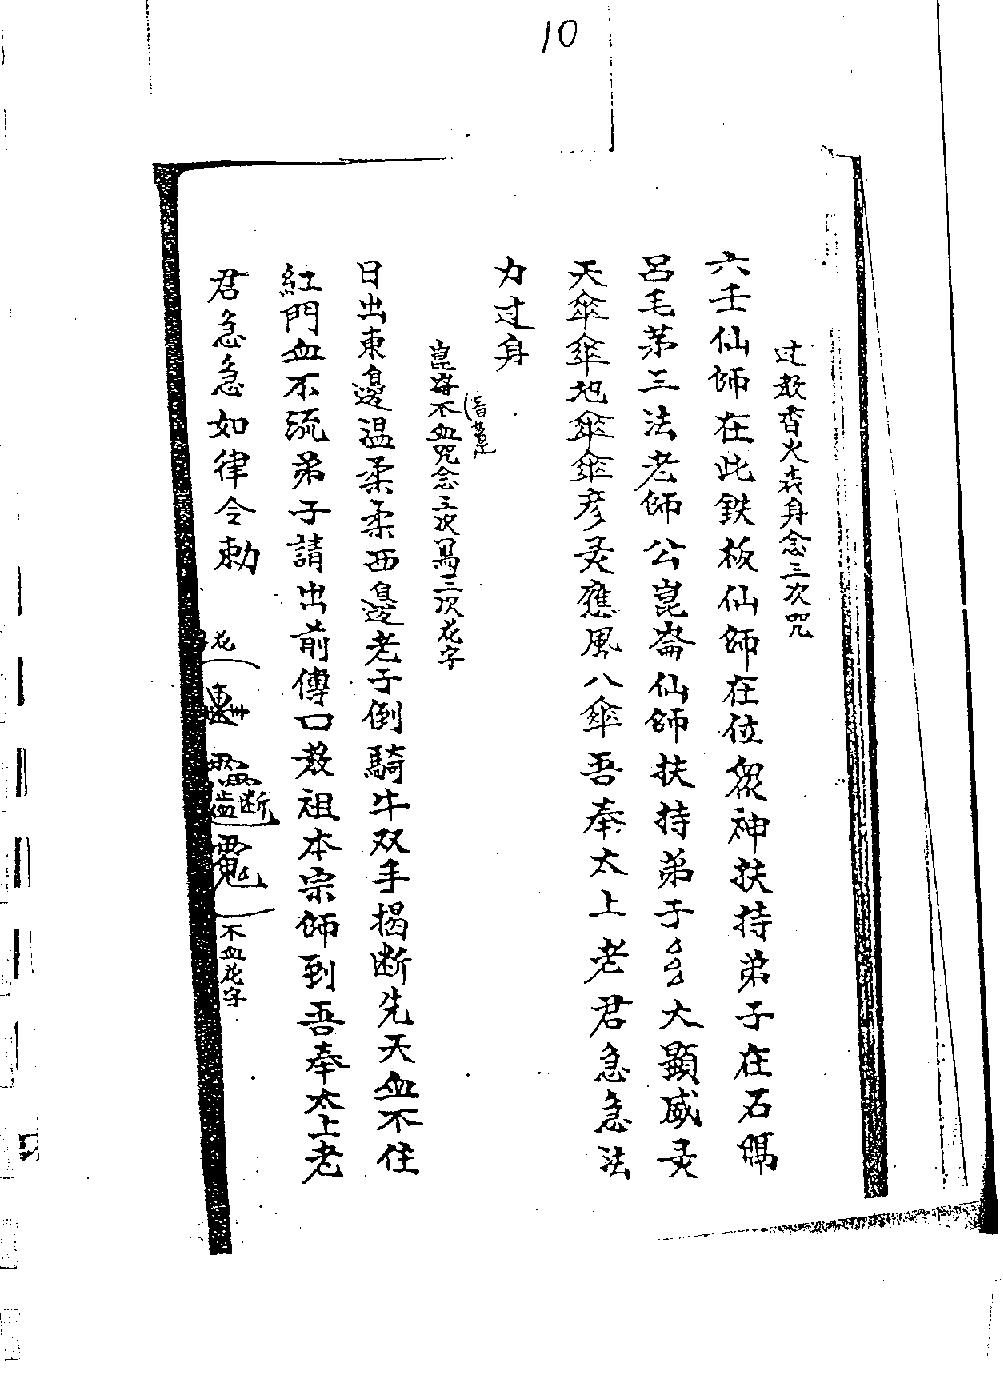 10
过教香火表身念三次咒
六壬仙師在此鉄板仙師在位眾神扶持弟子在石碼
吕毛茅三法老師公崑崙仙師扶持弟子大顯威灵
天傘傘地傘傘彦灵應風八傘吾奉太上老君急急法
力过身
不血咒念三次寫三次花字
日出東邊温柔柔西邊老子倒騎牛双手揭断先天血不住
紅門血不流弟子請出前傳口教祖本宗師到吾奉太上老
君急急如律令勅
花
不血花字